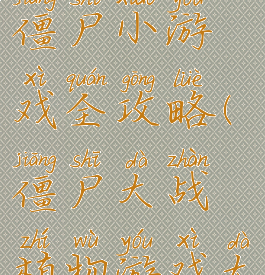 jiāng shī xiǎo yóu
僵尸小游
xì quán gōng lüè
戏全攻略(
jiāng shī dà zhàn
僵尸大战
zhí wù yóu xì dà
植物游戏大